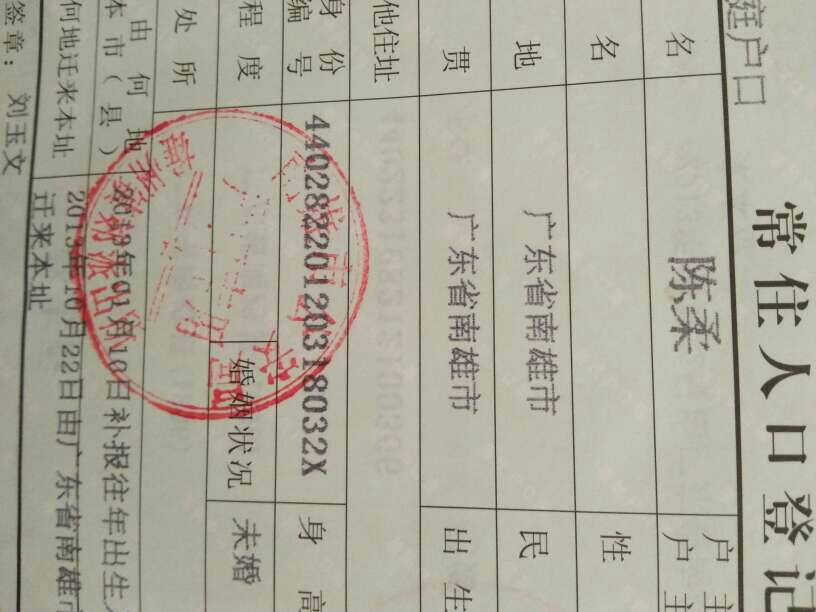 庭户口
常住人口登记
名 陈柔 户主
户主
名 性
地 广东省南雄市 民
贯 广东省南雄市 出生
他住址
身份
编号 44028220120318032X 身高
程度 婚姻状况 未婚
处所
由何地
本市（县） 2013年01月10日补报往年出生
何地迁来本址 2013年10月22日由广东省南雄市
迁来本址
签章： 刘玉文